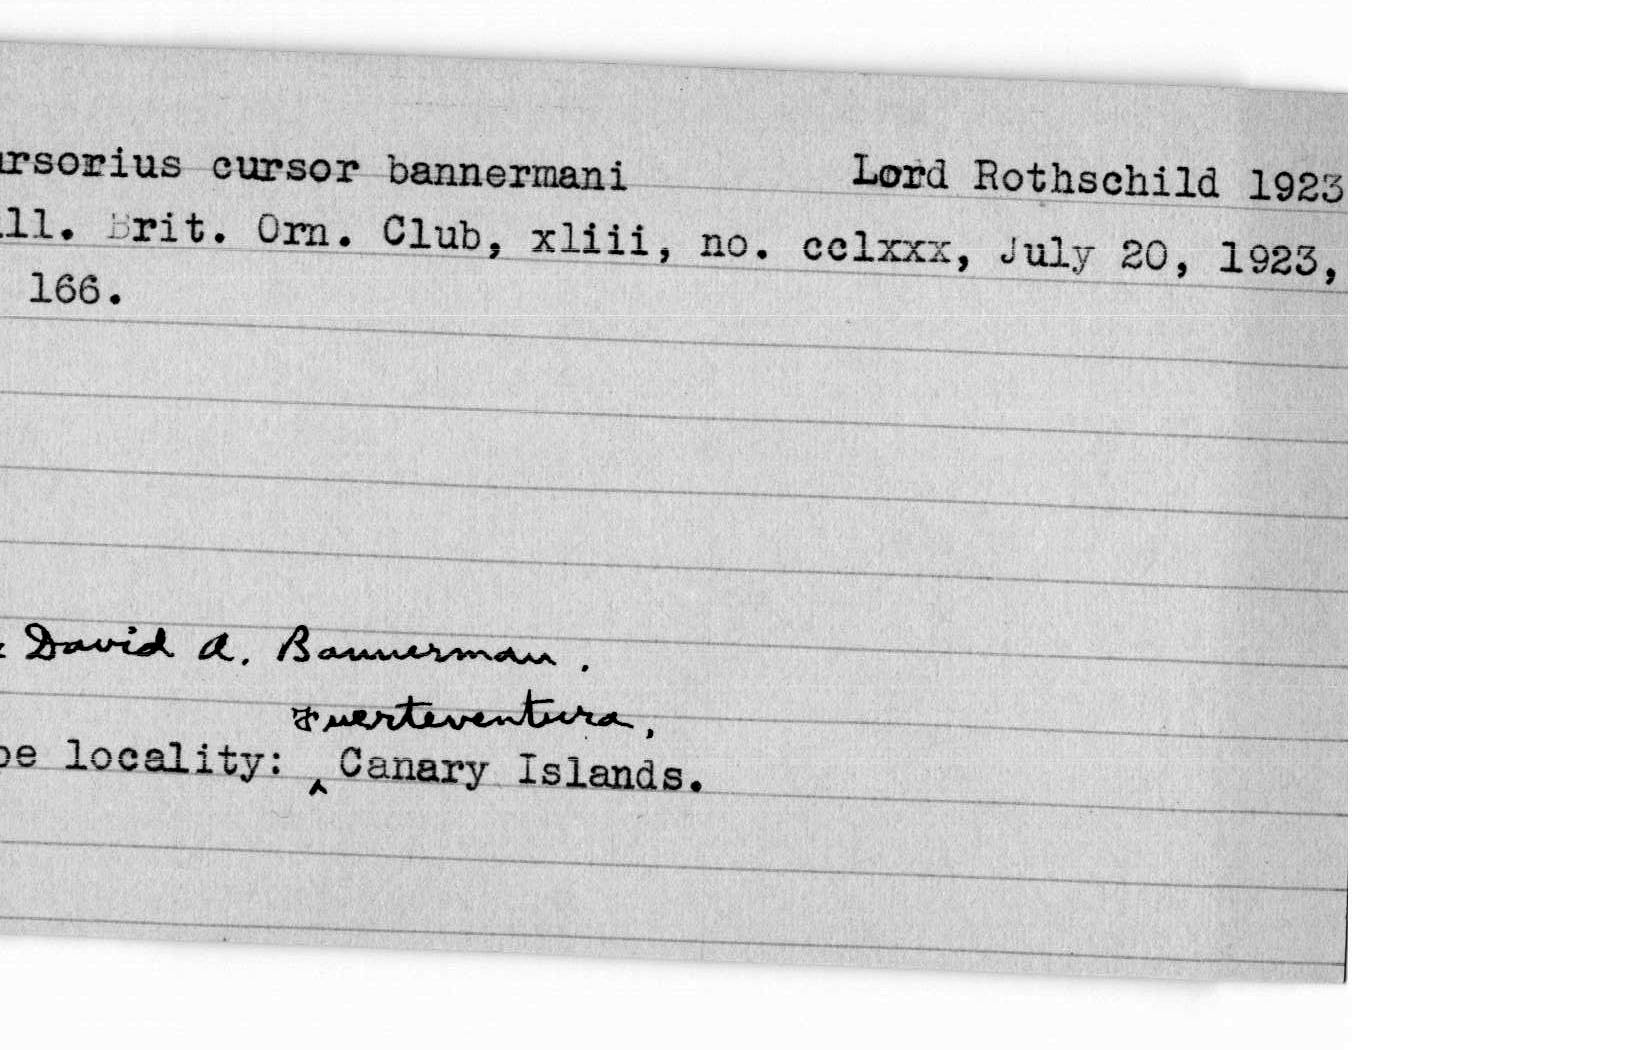 ursorius cursor bannermani Lord Rothschild 1923
ll. Brit. Orn. Club, xliii, no. cclxxx, July 20, 1923,
166.
David A. Bannerman.
Fuerteventura,
pe locality: ^ Canary Islands.